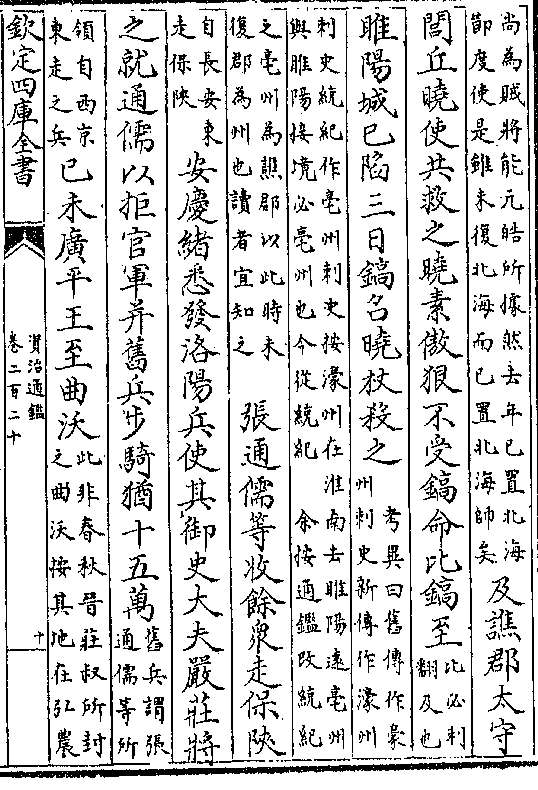 尚為賊將能元皓所據然去年已置北海
節度使是雖未復北海而已置北海帥矣
及譙郡太守
閭丘曉使共救之曉素傲狠不受鎬命比鎬至
比必利
翻及也
睢陽城已陷三日鎬召曉杖殺之
考異曰舊傳作豪
州刺史新傳作濠州
刺史統紀作亳州刺史按濠州在淮南去睢陽遠亳州
與睢陽接境必亳州也今從統紀 余按通鑑改統紀
之亳州為譙郡以此時未
復郡為州也讀者宜知之
張通儒等收餘衆走保陜
自長安東
走保陜
安慶緒悉發洛陽兵使其御史大夫嚴莊將
之就通儒以拒官軍并舊兵步騎猶十五萬
舊兵謂張
通儒等所
領自西京
東走之兵
已未廣平王至曲沃
此非春秋晉莊叔所封
之曲沃按其地在弘農
欽定四庫全書
資治通鑑
卷二百二十
十